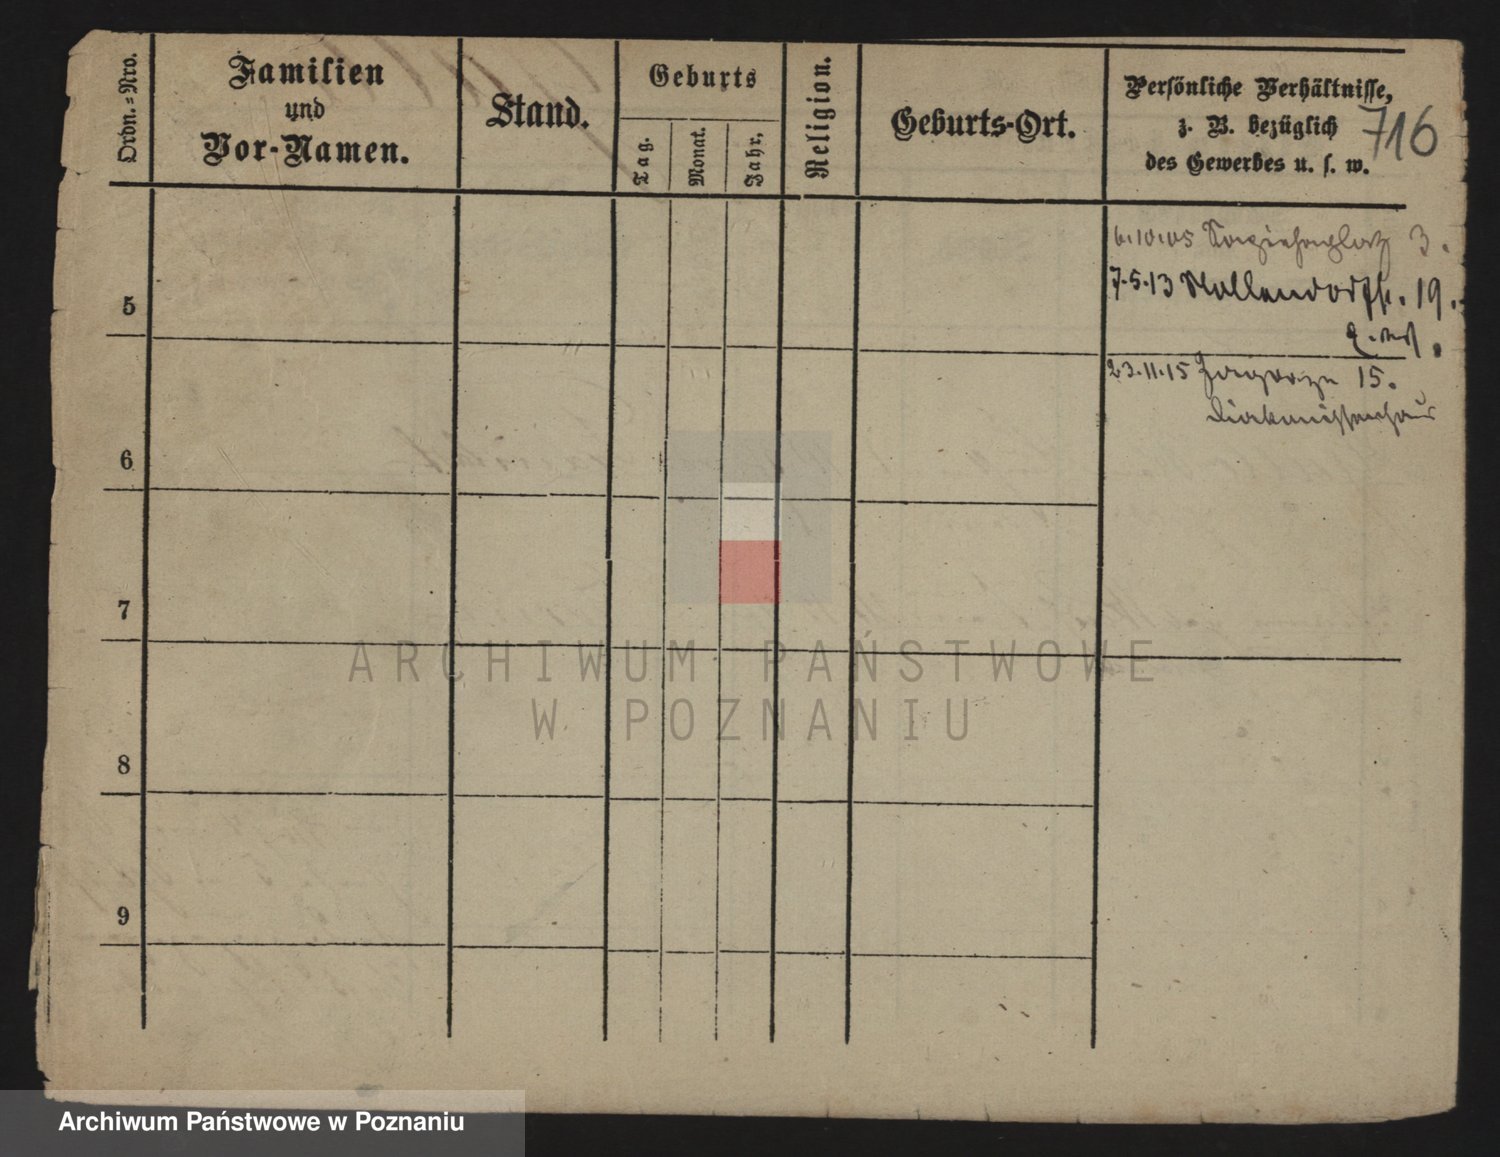 Ordn.=Nro.
Familien
und
Vor-Namen.
Stand.
Geburts
Tag.
Monat.
Jahr.
Religion.
Geburts-Ort.
Persönliche Verhältnisse,
z. B. bezüglich
des Gewerbes u. s. w.
716
6.10.05 3.
5
7.5.13 Nollendorfstr. 19.
23.11.15 15.
Diakonissenhaus
6
7
8
9
ARCHIWUM PAŃSTWOWE
W POZNANIU
Archiwum Państwowe w Poznaniu